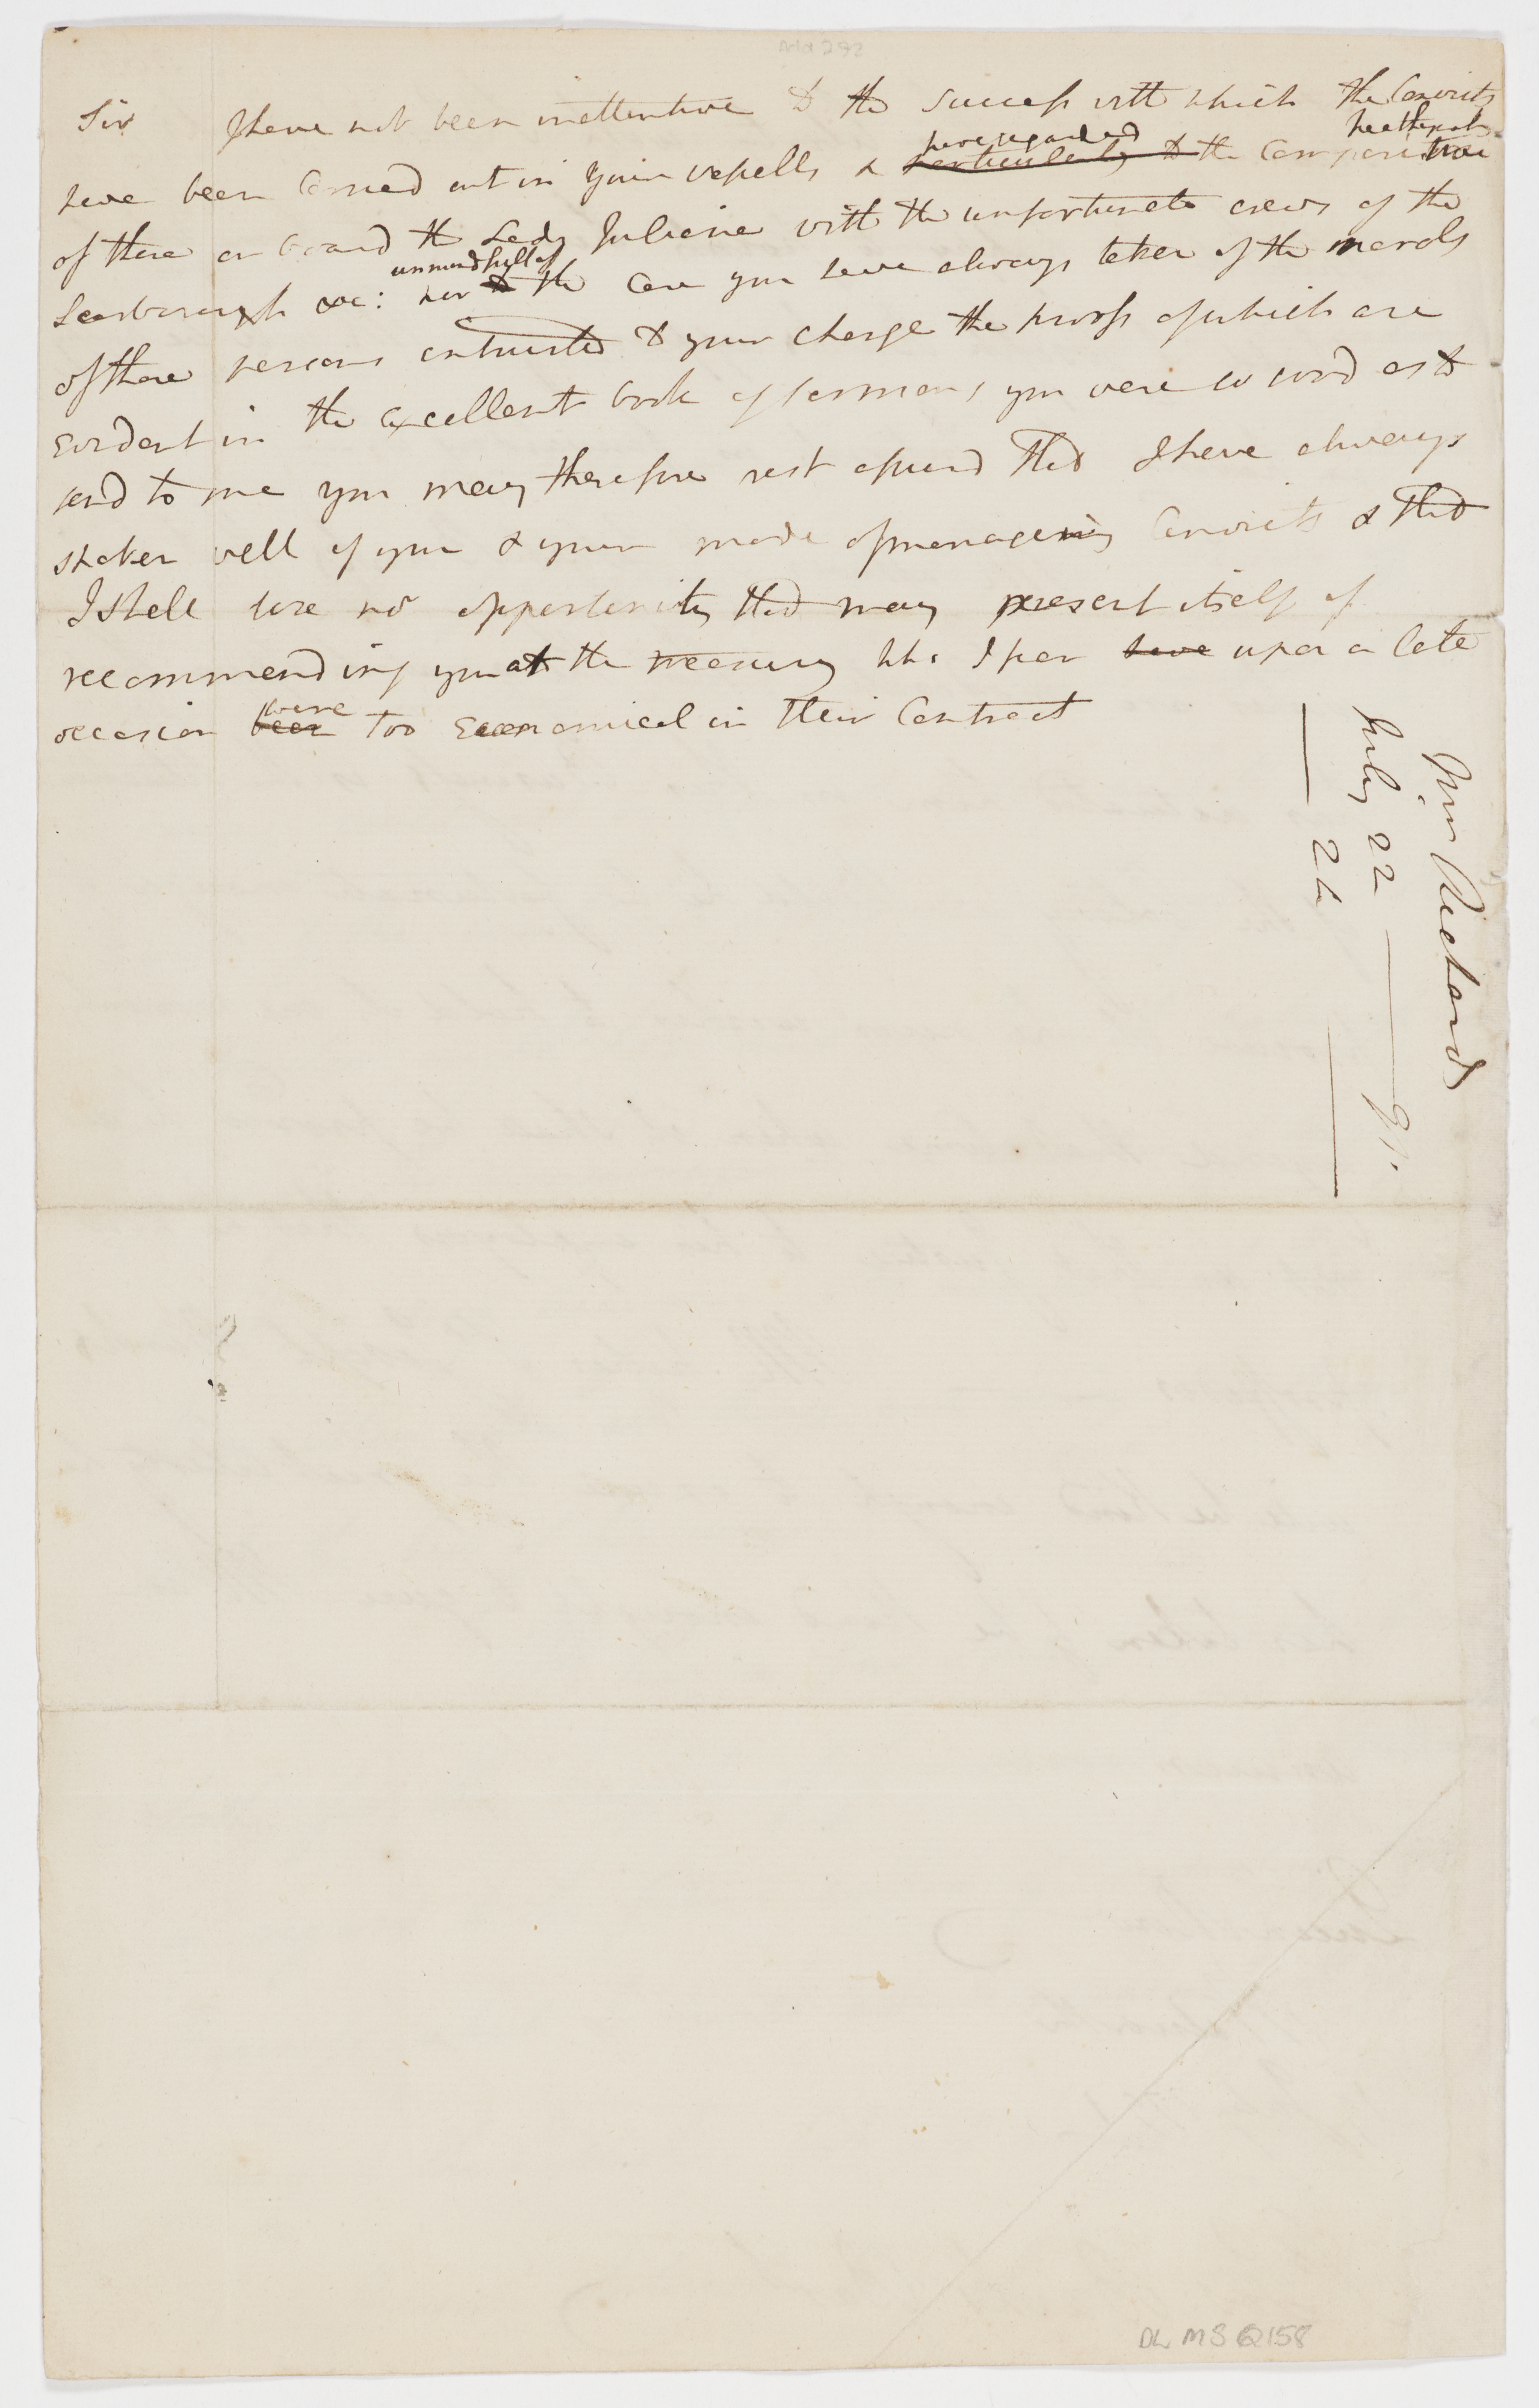 Add 292
Sir I have not been inattentive to the success with which the Convicts
have been Carried out in your vessells & particularly to the Comparitive
have regarded
healthyness
of those on board the Lady Juliana with the unfortunate crews of the
Scarborough &c: nor to the Care you have always taken of the morals
unmindfull of
of those persons entrusted to your charge the proofs of which are
Evident in the excellent book of sermons you were so good as to
send to me you may therefore rest assurd that I have always
spoken well of you & your mode of managing Convicts & that
I shall lose no opportunity that may present itself of
recommending you at the treasury who I fear have upon a late
occasion been too Economical in their Contract
were
Mr Richards
July 22 — 91.
— 24 —
DL MS Q158